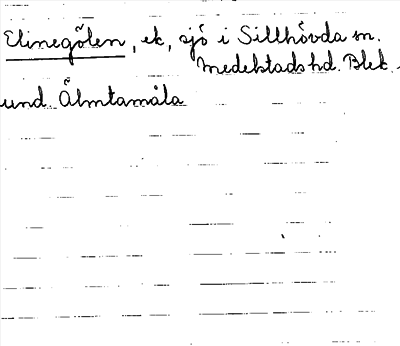 Elinegölen, ek, sjö i Sillhövda sn.
Medelstads hd. Blek.
und. Älmtamåla